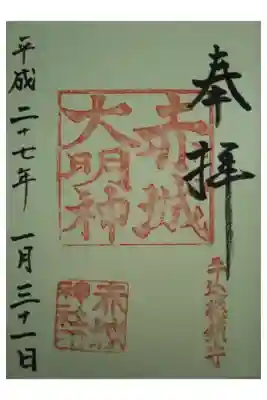 奉拝
赤城
大明神
牛込総鎮守
赤城
神社
平成二十七年 一月三十一日